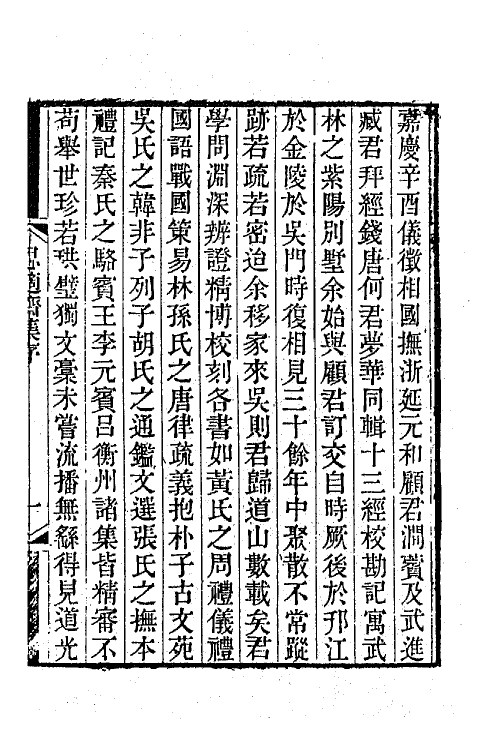 嘉慶辛酉儀徵相國撫浙延元和顧君澗薲及武進
臧君拜經錢唐何君夢華同輯十三經校勘記寓武
林之紫陽別墅余始與顧君訂交自時厥後於邗江
於金陵於吳門時復相見三十餘年中聚散不常蹤
跡若疏若密迨余移家來吳則君歸道山數載矣君
學問淵深辨證精博校刻各書如黃氏之周禮儀禮
國語戰國策易林孫氏之唐律疏義抱朴子古文苑
吳氏之韓非子列子胡氏之通鑑文選張氏之撫本
禮記秦氏之駱賓王李元賓呂衡州諸集皆精審不
苟舉世珍若珙璧獨文稾未嘗流播無繇得見道光
思適齋集序
一